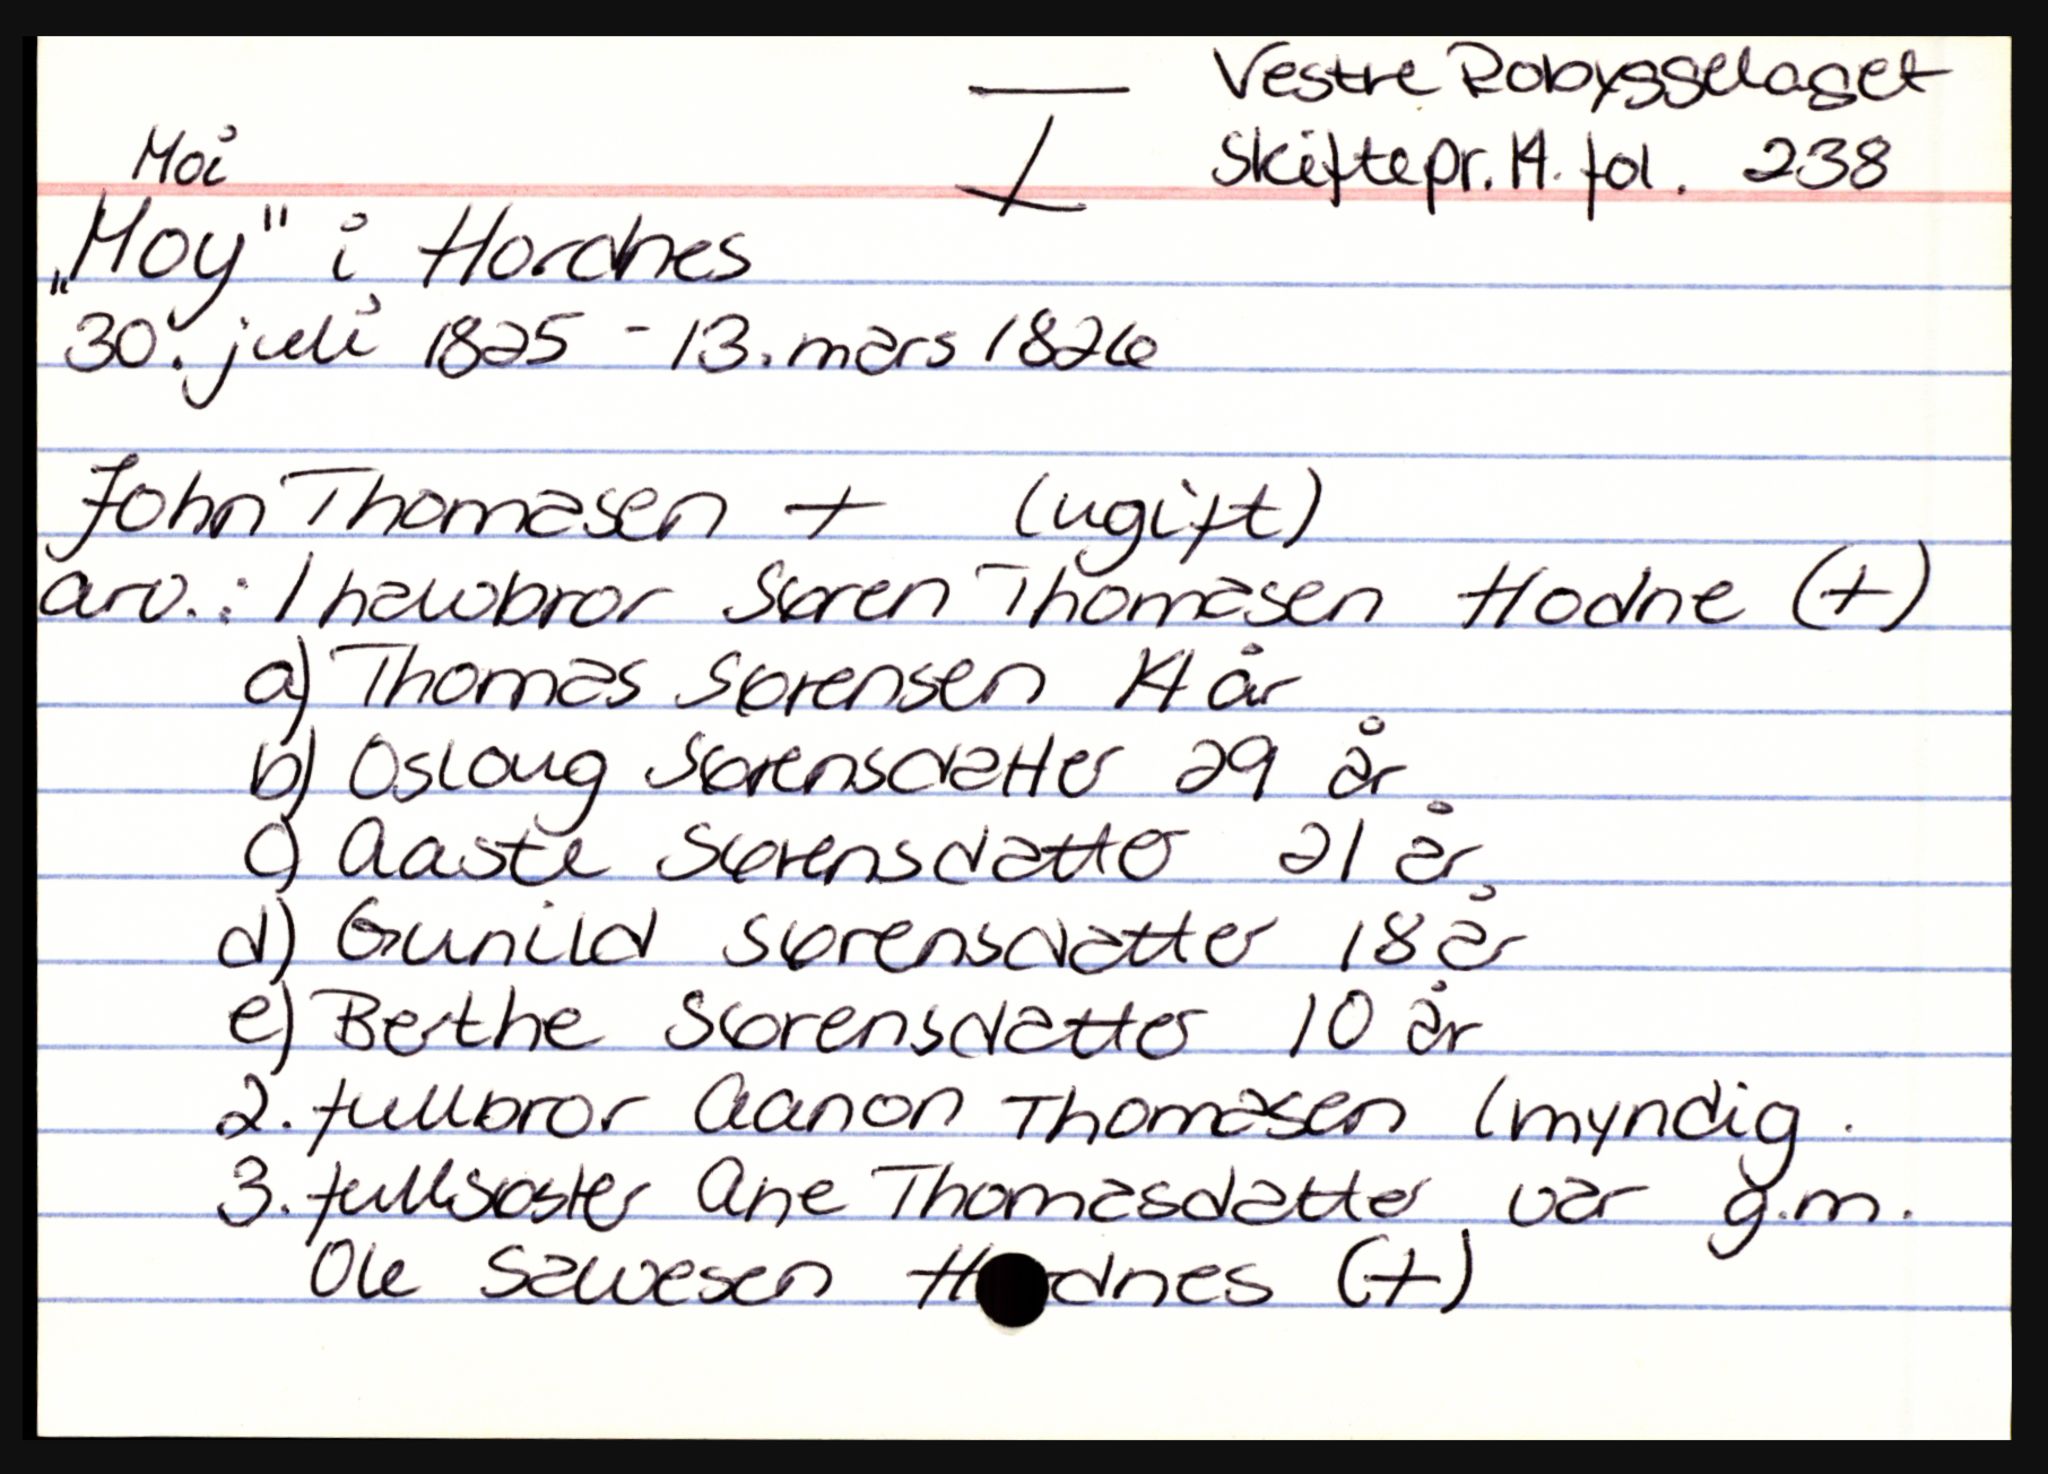 Vestre Robyggelaget
I Skiftepr. 14. fol. 238
Moi
"Moy" i Hordnes
30. juli 1825 - 13. mars 1826
John Thomasen + (ugift)
arv.: 1 halvbror Søren Thomasen Hodne (+)
a) Thomas Sørensen 14 år
b) Osloug Sørensdatter 29 år
c) Aaste Sørensdatter 21 år
d) Gunild Sørensdatter 18 år
e) Berthe Sørensdatter 10 år
2. fullbror Aanon Thomasen (myndig.
3. fullsøster Ane Thomasdatter var g.m.
Ole Salvesen Hodnes (+)